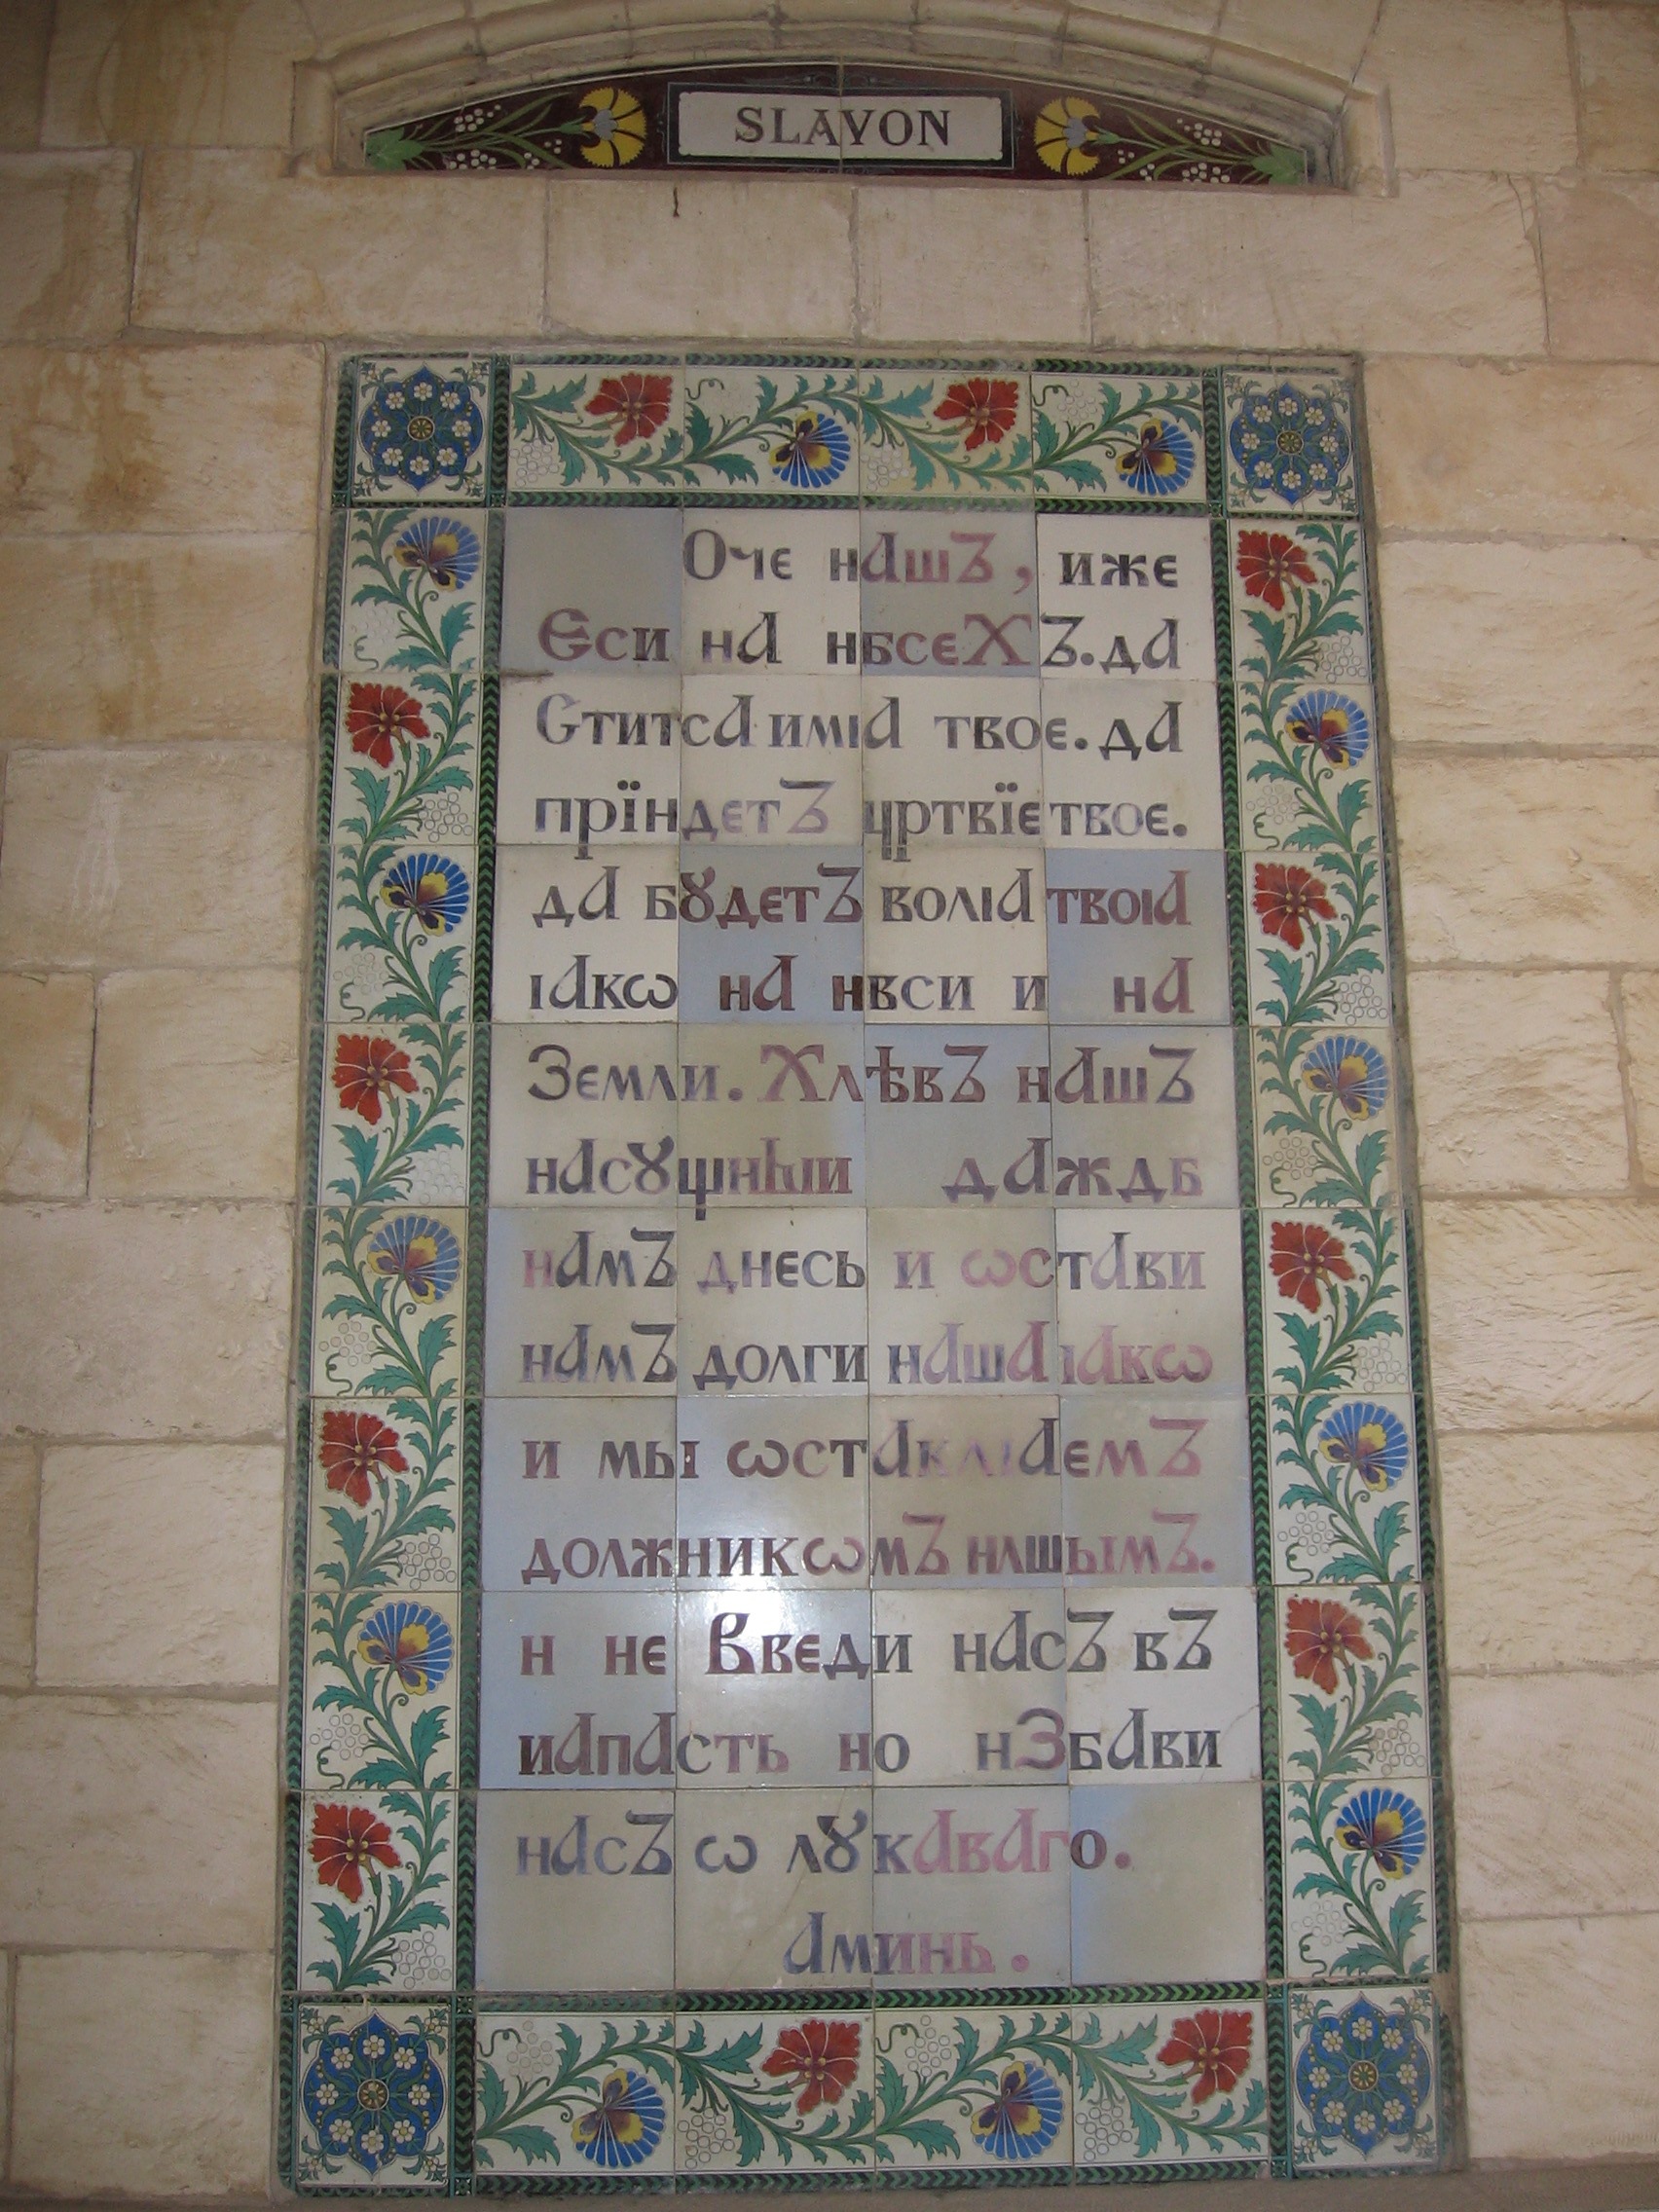 SLAVON
Оче нашъ, иже
Єси на нбсехъ. да
Стится имꙗ твоє. да
прїндетъ цртвїе твоє.
да бꙋдетъ волꙗ твоꙗ
ꙗкѡ на нвси и на
Земли. Хлѣвъ нашъ
насꙋщныи даждб
намъ днесь и ѡстави
намъ долги наша ꙗкѡ
и мы ѡстаклꙗемъ
должникѡмъ нашымъ.
н не Введи насъ въ
иапасть но нзбави
насъ ѡ лꙋкаваго.
аминь.